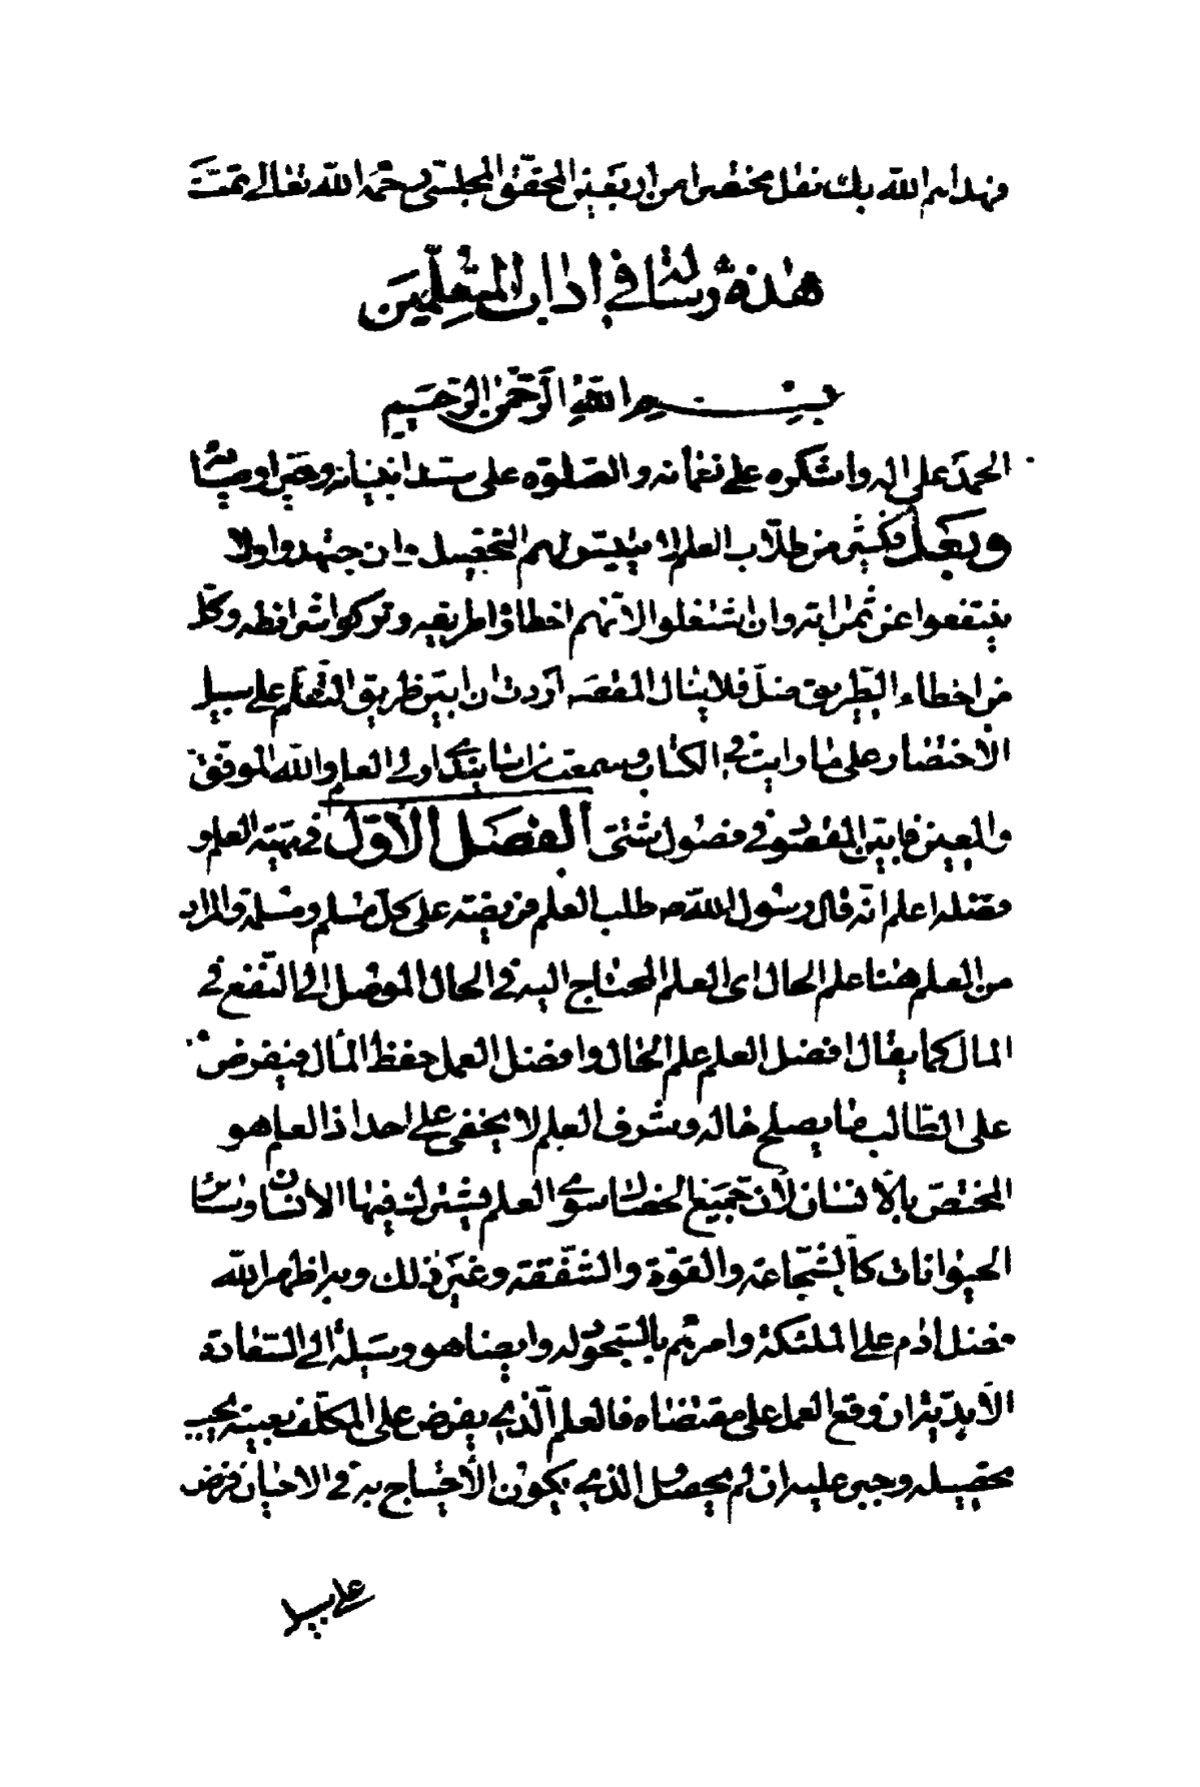 فهداهم الله بك نقل مختصرا من اربعين المحقق المجلسي رحمه الله تعالى تمت
هذه رسالة في اداب المتعلمين
بسم الله الرحمن الرحيم
الحمد على اله واشكره على نعمائه والصلوة على سيد انبيائه وخير اوصيائه
وبعد فكثير من طلاب العلم لا يتيسر لهم التحصيل وان جتهدوا ولا
ينتفعوا عن ثمراته وان اشتغلوا لانهم اخطاؤا طريقه وتركوا شرائطه وكل
من اخطاء الطريق ضل فلا ينال المقصد اردت ان ابين طريق التعلم على سبيل
الاختصار على ما رايت في الكتاب وسمعت من اساتيدي اولى العلم والله الموفق
والمعين فابين المقصود في فصول شتى الفصل الاول في مهية العلم و
فضله اعلم انه قال رسول الله ص طلب العلم فريضة على كل مسلم ومسلمة والمراد
من العلم هنا علم الحال اى العلم المحتاج اليه في الحال الموصل الى النفع في
المال كما يقال افضل العلم علم الحال وافضل العمل حفظ المال فيفرض
على الطالب ما يصلح حاله وشرف العلم لا يخفى على احد اذ العلم هو
المختص بالانسان لان جميع الخصال سوى العلم يشترك فيها الانسان وسائر
الحيوانات كالشجاعة والقوة والشفقة وغير ذلك وبه اظهر الله
فضل ادم على الملئكة وامرهم بالسجود له وايضا هو وسيلة الى السعادة
الابدية ان وقع العمل على مقتضاه فالعلم الذي يفرض على المكلف بعينه يجب
تحصيله وجبر عليه ان لم يحصل الذي يكون الاحتياج به في الاحيان فرض
على سبيل